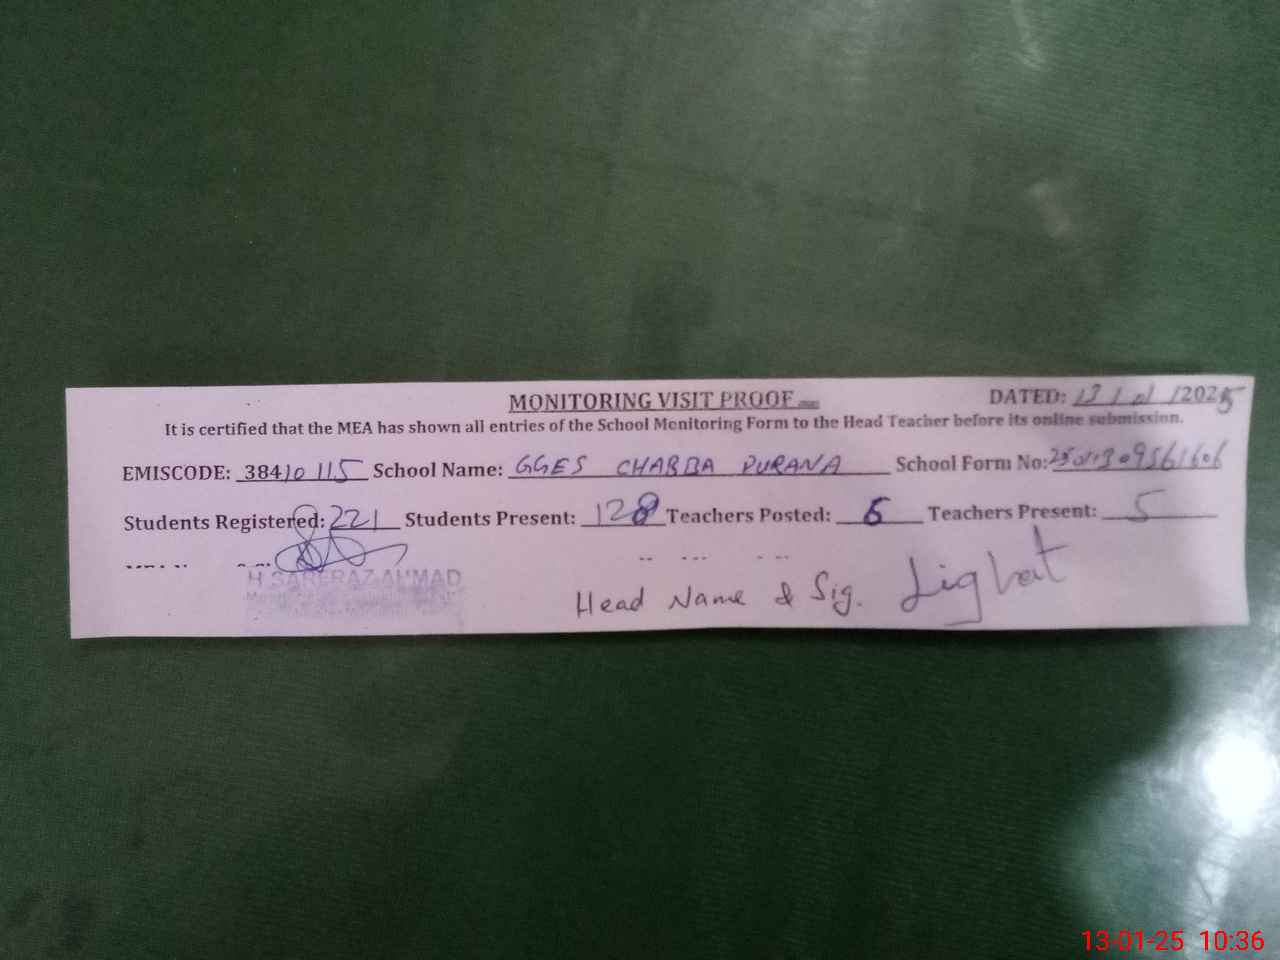 MONITORING VISIT PROOF
DATED: 13/01/2025
It is certified that the MEA has shown all entries of the School Monitoring Form to the Head Teacher before its online submission.
EMISCODE: 38410115 School Name: GGES CHABBA PURANA School Form No:
Students Registered: 221 Students Present: 128 Teachers Posted: 6 Teachers Present: 5
H SARFRAZ AHMAD
Head Name & Sig.
13-01-25 10:36